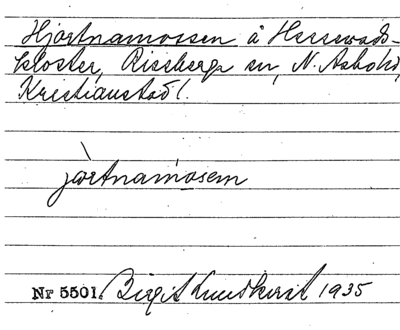 Hjortnamossen å Herrevads-
kloster, Riseberga sn, N. Åsbohd,
Kristianstad l.
jòrtnamósem
Nr 5501. Birgit Lundkvist 1935